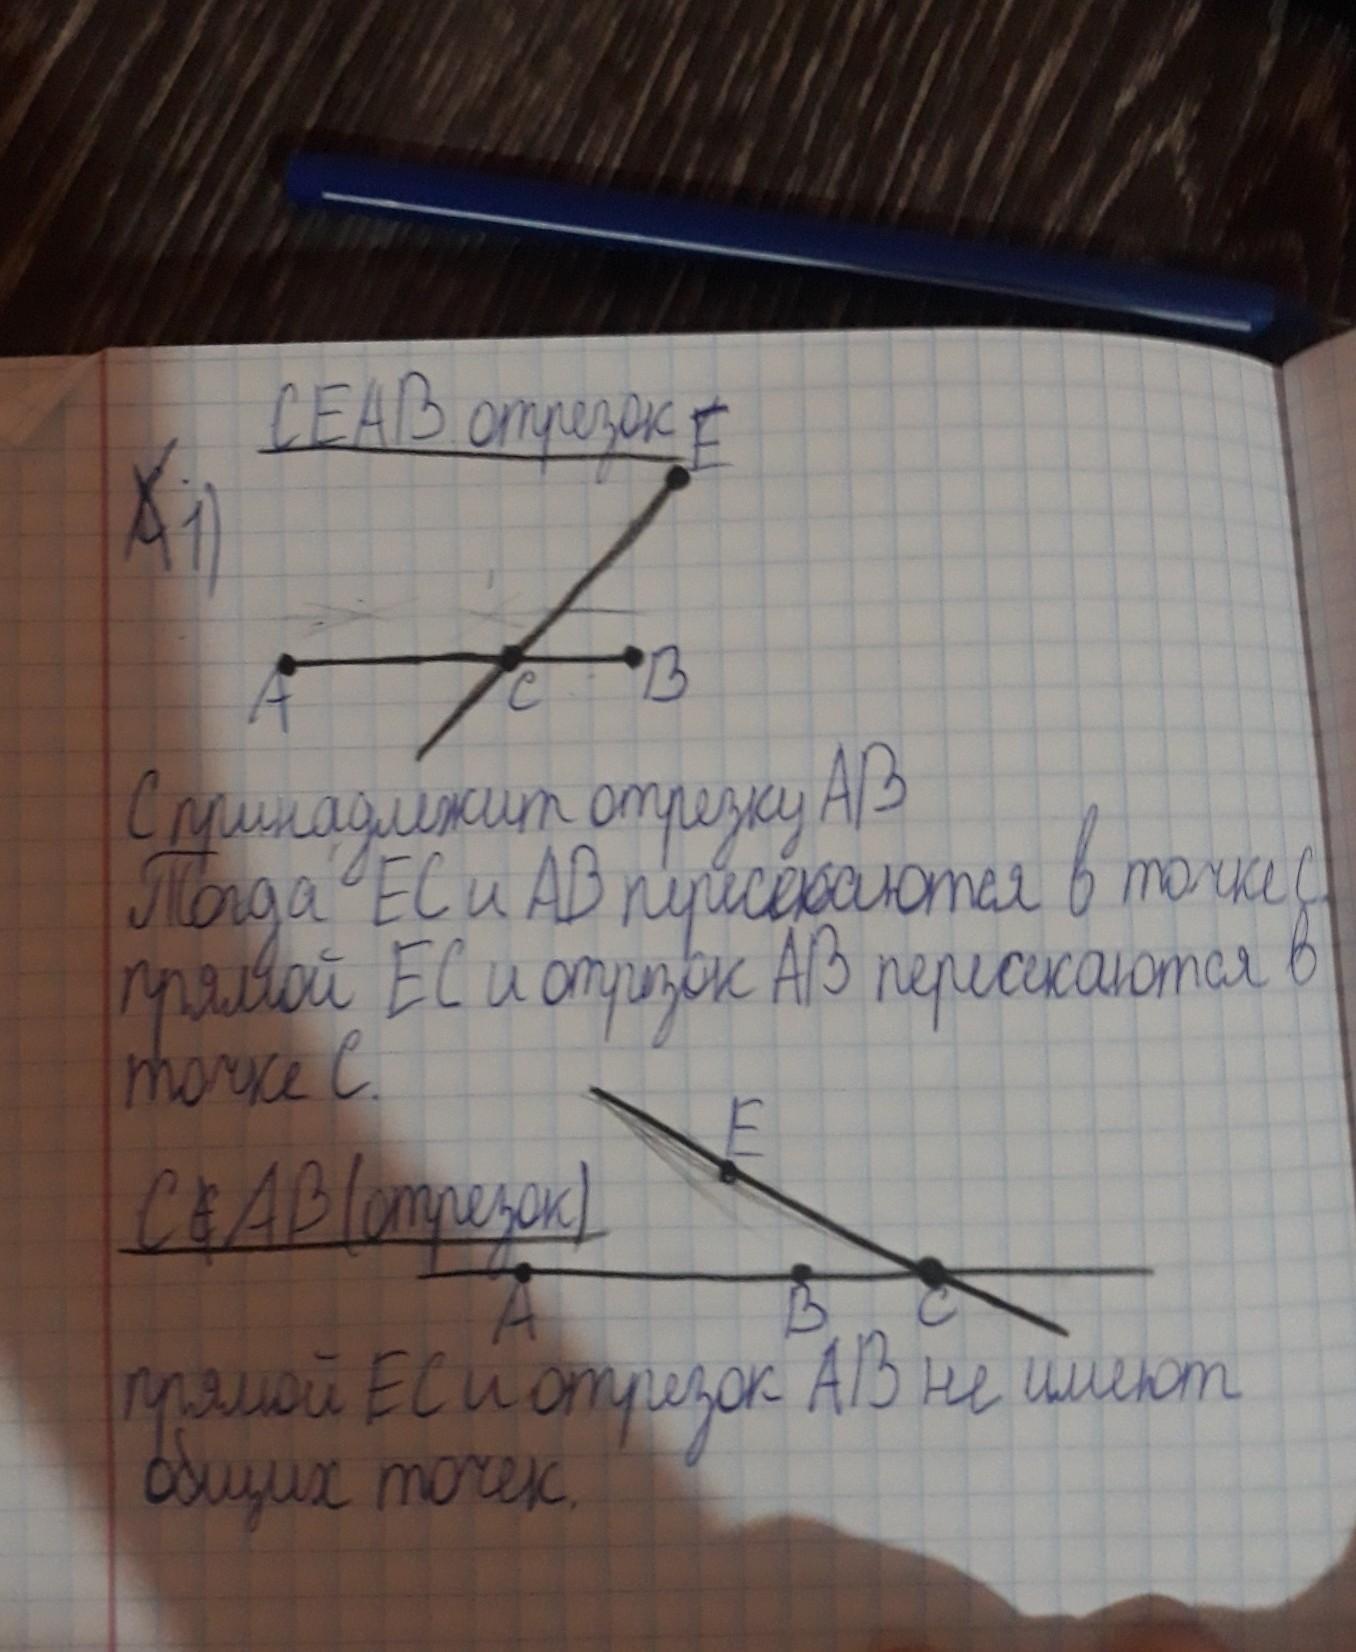 C∈AB отрезок
E
1)
A
C
B
С принадлежит отрезку AB
Тогда EC и AB пересекаются в точке C.
прямой EC и отрезок AB пересекаются в
точке C.
E
C∉AB (отрезок)
A
B
C
прямой EC и отрезок AB не имеют
общих точек.